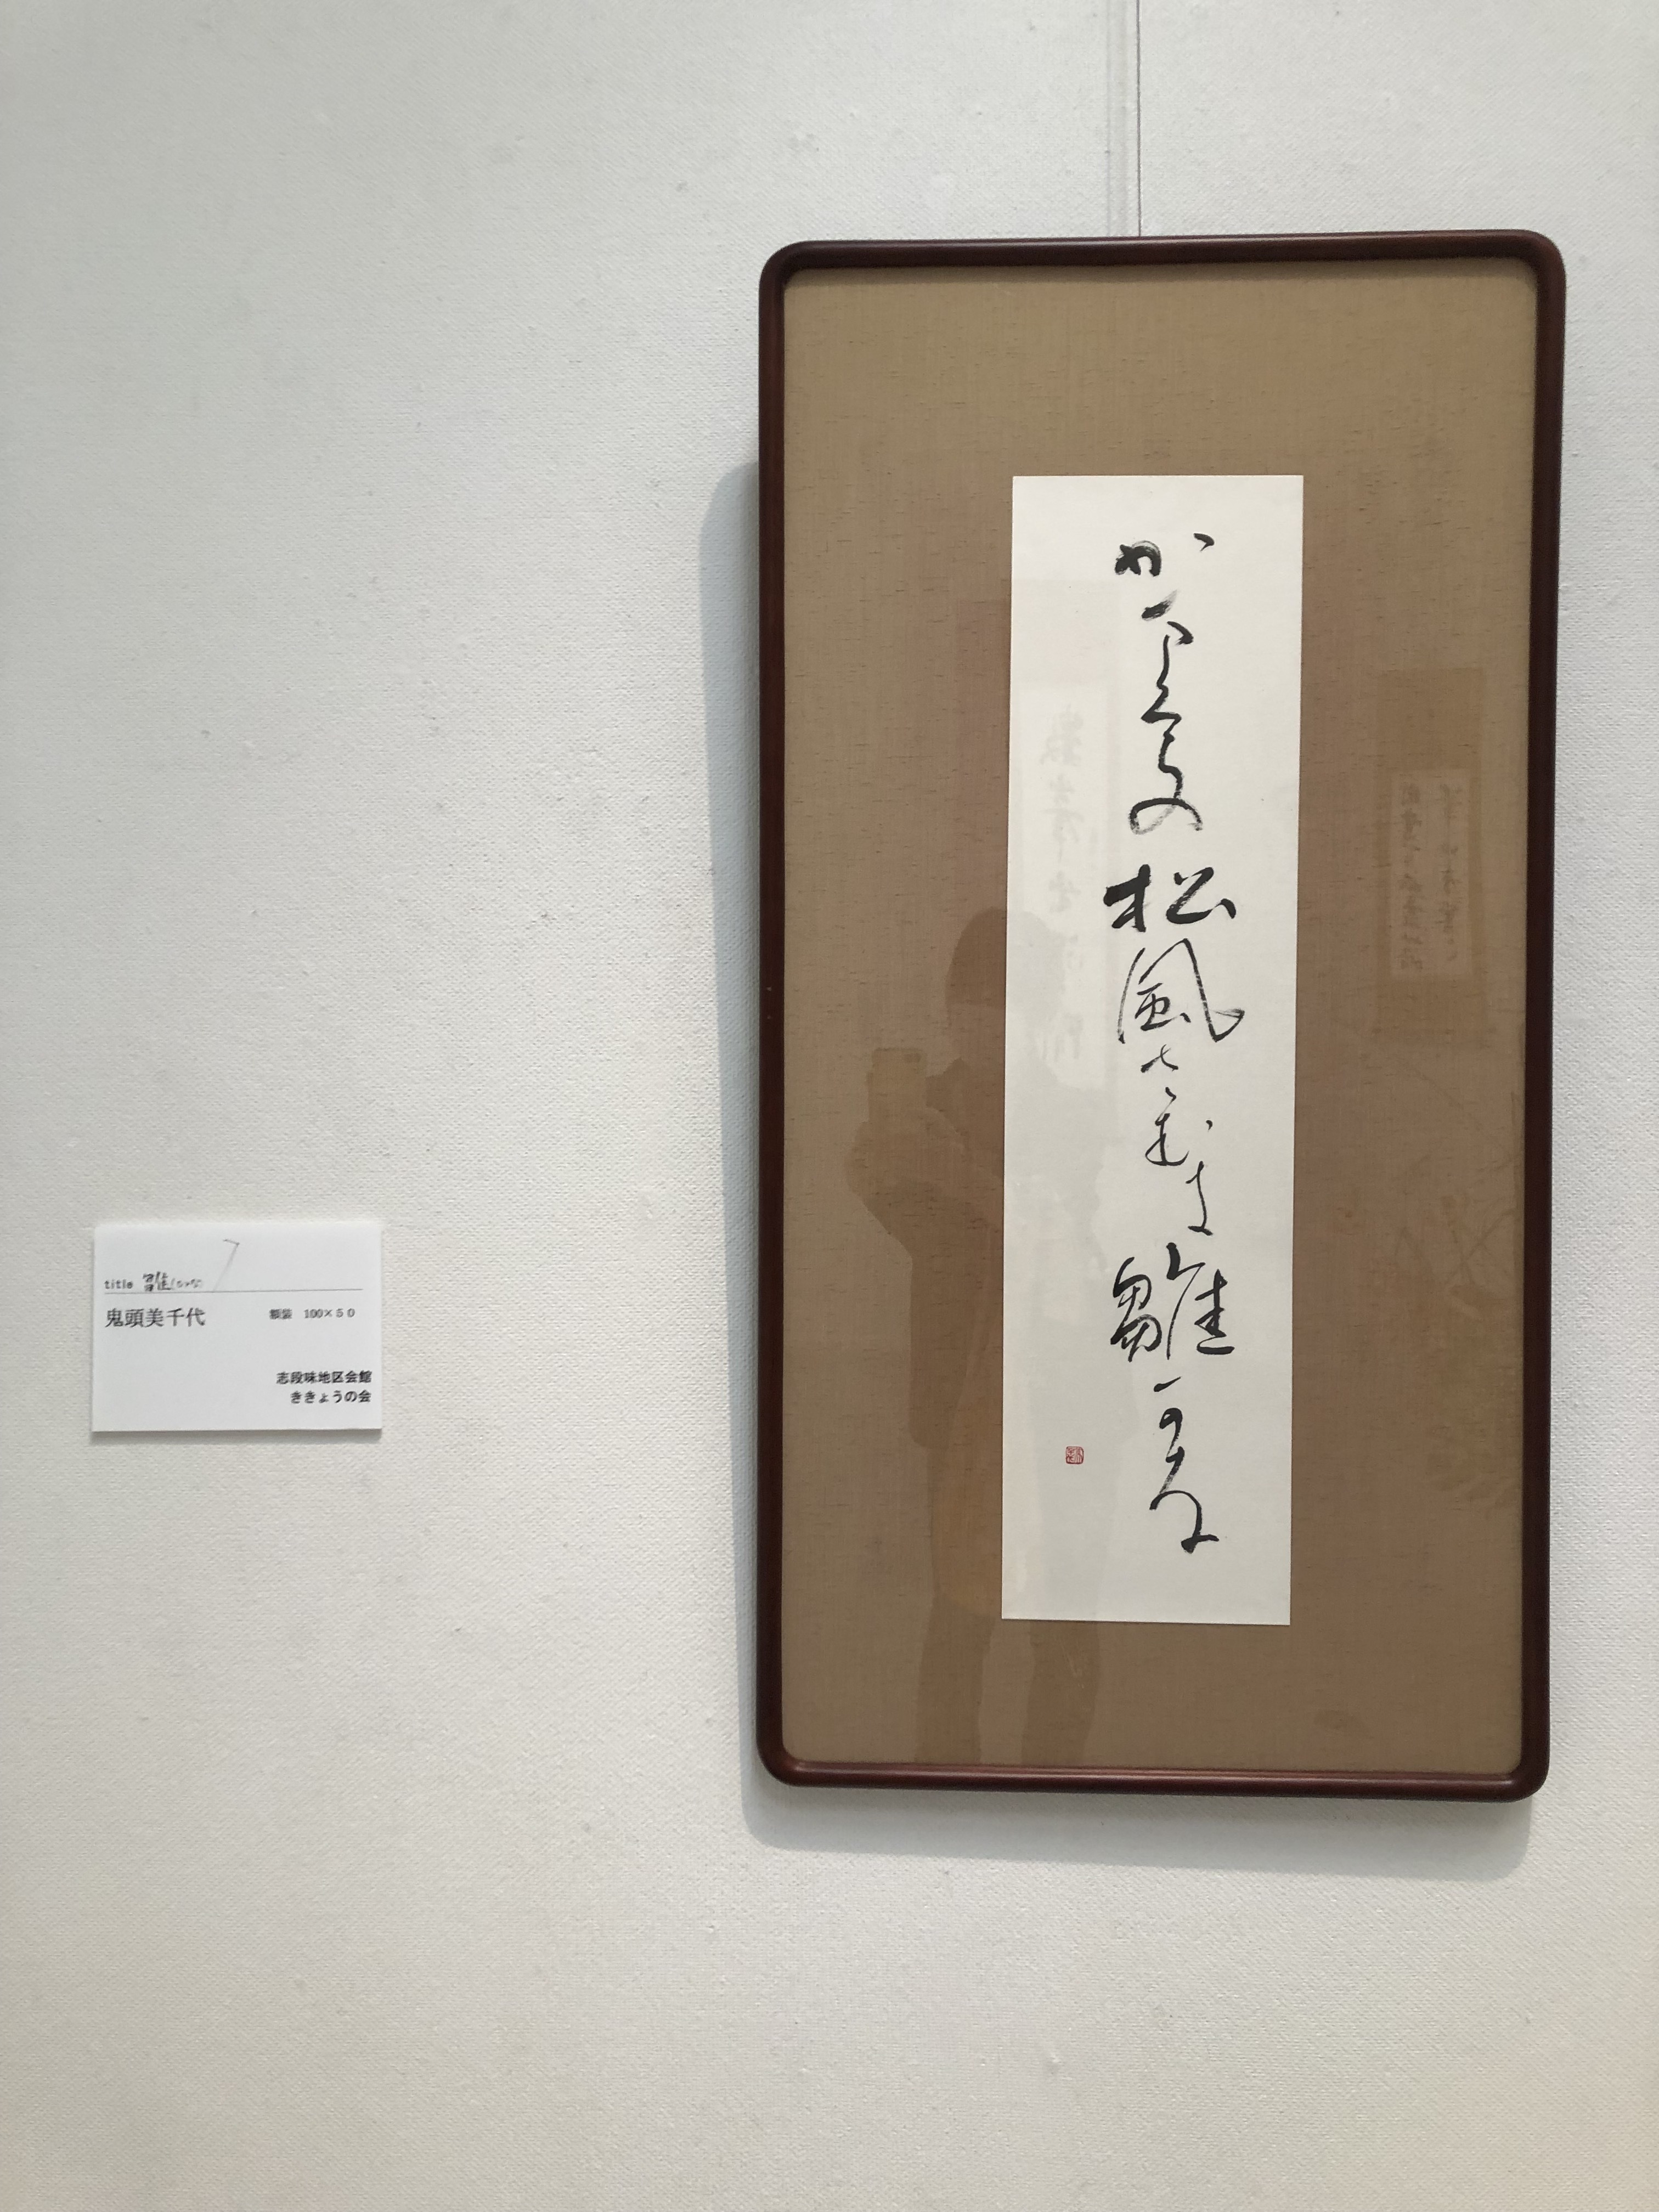 かまくらの松風さむき雛かな
title 雛(ひな) 7
鬼頭美千代 額装 100×50
志段味地区会館
ききょうの会